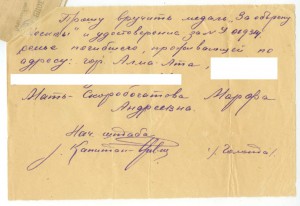 Прошу вручить медаль „За оборону
Москвы" и удостоверение за №
семье погибшего, проживающей по
адресу: гор. Алма-Ата,
Мать – Скоробогатова Марфа
Андреевна.
Нач. штаба
Капитан